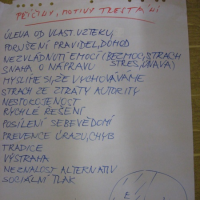 PŘÍČINY, MOTIVY TRESTÁNÍ
ÚLEVA OD VLAST. VZTEKU,
PORUŠENÍ PRAVIDEL, DOHOD
NEZVLÁDNUTÍ EMOCÍ (BEZMOC, STRACH
SNAHA O NÁPRAVU STRES, ÚNAVA)
MYSLÍME SI, ŽE VYCHOVÁVÁME
STRACH ZE ZTRÁTY AUTORITY
NESPOKOJENOST
RYCHLÉ ŘEŠENÍ
POSÍLENÍ SEBEVĚDOMÍ
PREVENCE ÚRAZŮ, CHYB
TRADICE
VÝSTRAHA
NEZNALOST ALTERNATIV
SOCIÁLNÍ TLAK